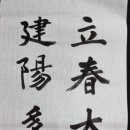 立春大
建陽多